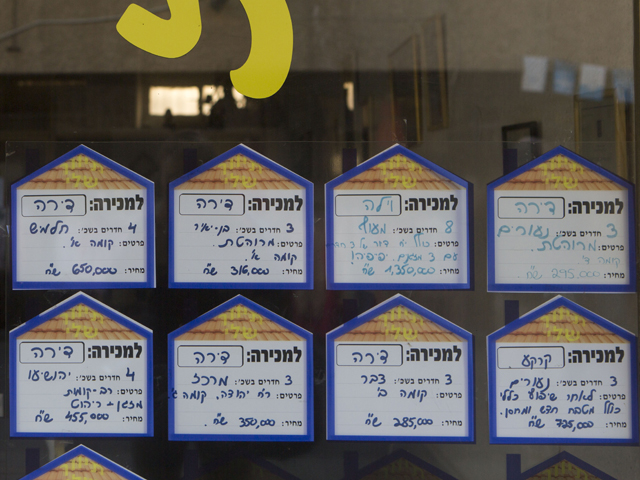 למכירה: דירה
4 חדרים בשכ': חלמיש
פרטים: קומה א'.
מחיר: 650,000 ש"ח
למכירה: דירה
3 חדרים בשכ':
פרטים: מרוהטת.
קומה א'.
מחיר: 316,000 ש"ח
למכירה: וילה
8 חדרים בשכ': מעוף
פרטים:
עם 3
מחיר: 1,350,000 ש"ח
למכירה: דירה
3 חדרים בשכ': נעורים
פרטים: מרוהטת.
קומה ד'
מחיר: 295,000 ש"ח
למכירה: דירה
4 חדרים בשכ': יהושע
פרטים: רב-קומות
מזגן + ריהוט
מחיר: 455,000 ש"ח
למכירה: דירה
3 חדרים בשכ': מרכז
פרטים: רח' יהודה, קומה א'.
מחיר: 350,000 ש"ח.
למכירה: דירה
3 חדרים בשכ': צבר
פרטים: קומה ב'
מחיר: 285,000 ש"ח
למכירה: קרקע
3 חדרים בשכ': נעורים
פרטים: לאחר שיפוץ כללי
כולל מטבח חדש ומחסן.
מחיר: 725,000 ש"ח